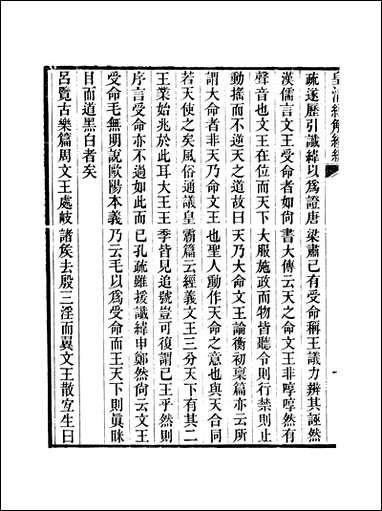 皇清經解續編
疏遂歷引讖緯以爲證唐梁肅已有受命稱王議力辨其誣然
漢儒言文王受命者如尙書大傳云天之命文王非啍啍然有
聲音也文王在位而天下大服施政而物皆聽令則行禁則止
動搖而不逆天之道故曰天乃大命文王論衡初稟篇亦云所
謂大命者非天乃命文王也聖人動作天命之意也與天合同
若天使之矣風俗通議皇霸篇云經義文王三分天下有其二
王業始兆於此耳大王王季皆見追號豈可復謂已王乎然則
序言受命亦不過如此而已孔疏雖援讖緯申鄭然尙云文王
受命毛無明說歐陽本義乃云毛以爲受命而王天下則眞眯
目而道黑白者矣
呂覽古樂篇周文王處岐諸矦去殷三淫而翼文王散宐生曰